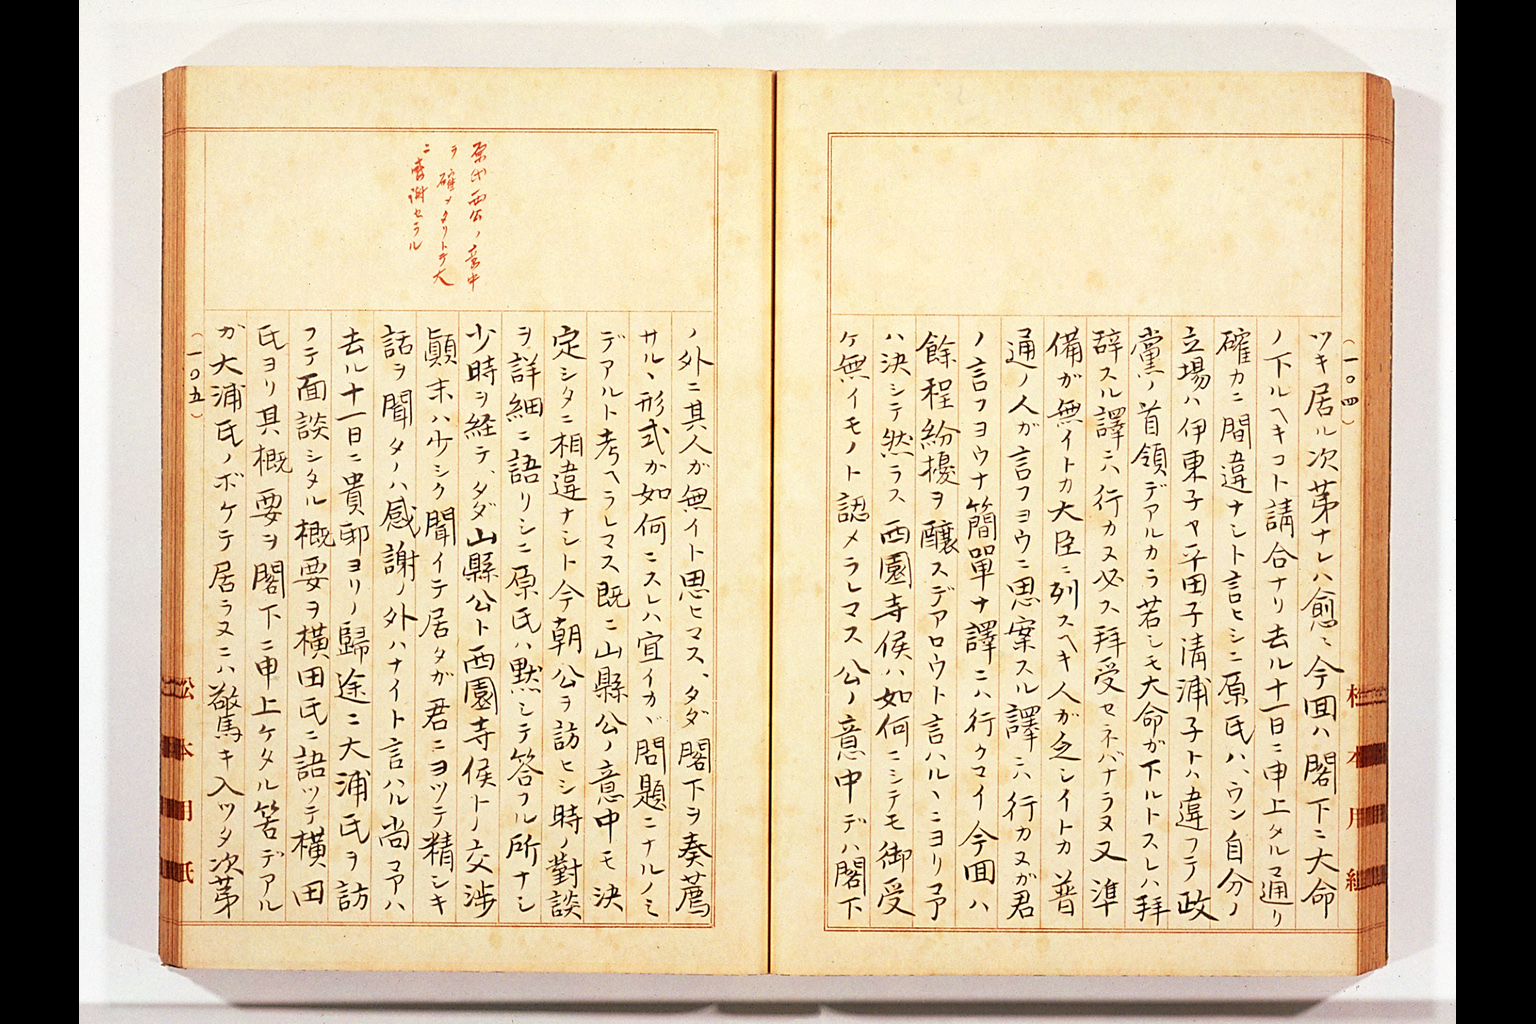 (一〇四)
ツキ居ル次第ナレハ愈〻今回ハ閣下ニ大命
ノ下ルヘキコト請合ナリ去ル十一日ニ申上タル通リ
確カニ間違ナシト言ヒシニ原氏ハ、ウン自分ノ
立場ハ伊東子ヤ平田子清浦子トハ違フテ政
黨ノ首領デアルカラ若シモ大命ガ下ルトスレハ拜
辞スル譯ニハ行カヌ必ス拜受セネバナラヌ又準
備ガ無イトカ大臣ニ列スヘキ人ガ乏シイトカ普
通ノ人ガ言フヨウニ思案スル譯ニハ行カヌガ君
ノ言フヨウナ簡單ナ譯ニハ行クマイ今回ハ
餘程紛擾ヲ醸スデアロウト言ハルヽニヨリ予
ハ決シテ然ラス西園寺侯ハ如何ニシテモ御受
ケ無イモノト認メラレマス公ノ意中デハ閣下
松本用紙
原氏西公ノ意中
ヲ確メタリトテ大
ニ感謝セラル
ノ外ニ其人ガ無イト思ヒマス、タダ閣下ヲ奏薦
サルヽ形式ガ如何ニスレハ宜イカヾ問題ニナルノミ
デアルト考ヘラレマス既ニ山縣公ノ意中モ決
定シタニ相違ナシト今朝公ヲ訪ヒシ時ノ對談
ヲ詳細ニ語リシニ原氏ハ黙シテ答フル所ナシ
少時ヲ経テ、タダ山縣公ト西園寺侯トノ交渉
顚末ハ少シク聞イテ居タガ君ニヨツテ精シキ
話ヲ聞タノハ感謝ノ外ハナイト言ハル尚予ハ
去ル十一日ニ貴邸ヨリノ歸途ニ大浦氏ヲ訪
フテ面談シタル概要ヲ横田氏ニ語ツテ横田
氏ヨリ其概要ヲ閣下ニ申上ケタル筈デアル
ガ大浦氏ノボケテ居ラヌニハ驚キ入ツタ次第
(一〇五)
松本用紙